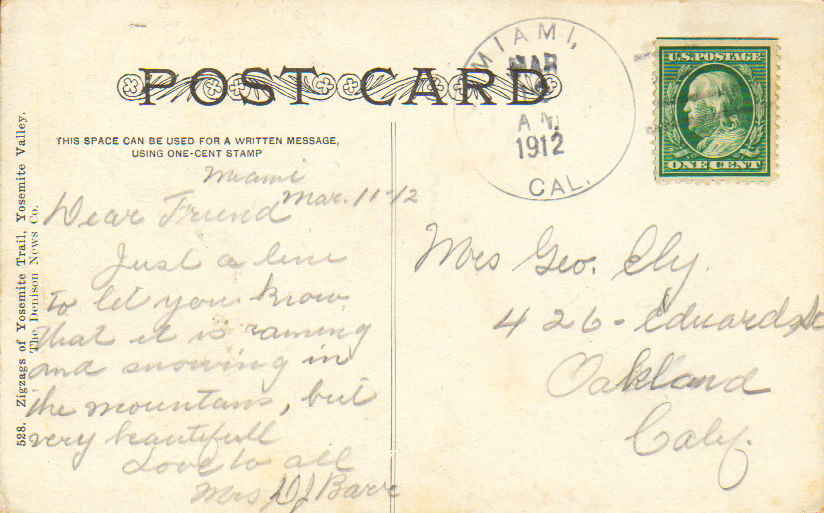 POST CARD
THIS SPACE CAN BE USED FOR A WRITTEN MESSAGE,
USING ONE-CENT STAMP
MIAMI,
MAR
A.M.
1912
CAL.
U.S. POSTAGE
ONE CENT
528. Zigzags of Yosemite Trail, Yosemite Valley.
The Denison News Co.
Miami
Mar. 11-12
Dear Friend
Just a line
to let you know
that it is raining
and snowing in
the mountans, but
very beautifull
Love to all
Mrs D J Barr
Mrs Geo. Ely.
426- Edwards St
Oakland
Caly.